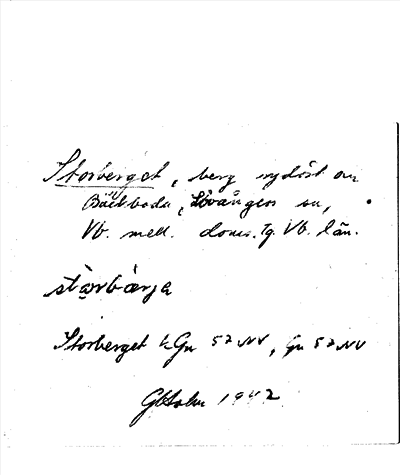 Storberget, berg sydöst om
Bäckboda, Lövångers sn,
Vb. mell. doms. Tg. Vb. län.
Storberget k Gn 52 NV, Gn 52 NV
GHolm 1942